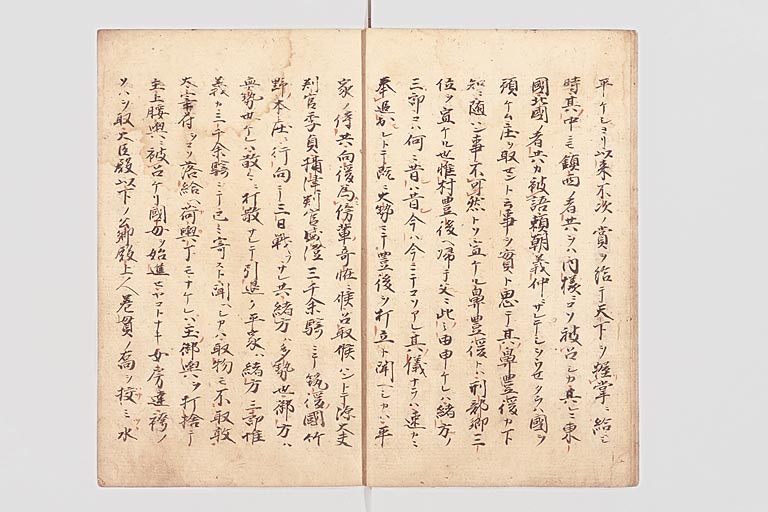 平ケシヨリ以来不次ノ賞ヲ給テ天下ヲ掌ニ給シ
時其中ニ鎮西ノ者共ヲハ内様ニコソ被召シカ其ニ東
国北国ノ者共カ被語頼朝義仲
頸ケム庄ヲ取セントラ事ヲ實ト思テ其鼻豊後カ下
知ニ随ン事不可然トソ宣ケル鼻豊後ト刑部卿三
位ヲ宣ケル也惟村豊後ヘ帰テ父ニ此ノ由申ケレハ緒方ノ
三郎コハ何ニ昔ハ昔今ハ今ニテコソアレ其儀ナラハ速カニ
奉追出トテ既ニ大勢ニテ豊後ヲ打立ト聞ヘシカハ平
家ノ侍共向後為傍輩奇怪ニ候召取候ハントテ源大夫
判官季貞摂津判官盛澄三千余騎ニテ筑後国竹
野本庄ニ行向テ三日戦フサレ共緒方ハ多勢也御方ハ
無勢也ケレハ散々ニ打散サレテ引退ク平家ハ緒方三郎惟
義カ三千余騎ニテ已ニ寄スト聞ヘシカハ取物モ不取敢
太宰府ヲコソ落給ヘ荷輿丁モナケレハ玉御輿ヲ打捨テ
主上腰輿ニ被召ケリ国母ヲ始進テヤコトナキ女房達袴ノ
ソハヲ取大臣殿以下ノ卿殿上人差貫ノ喬ヲ挟ミ水